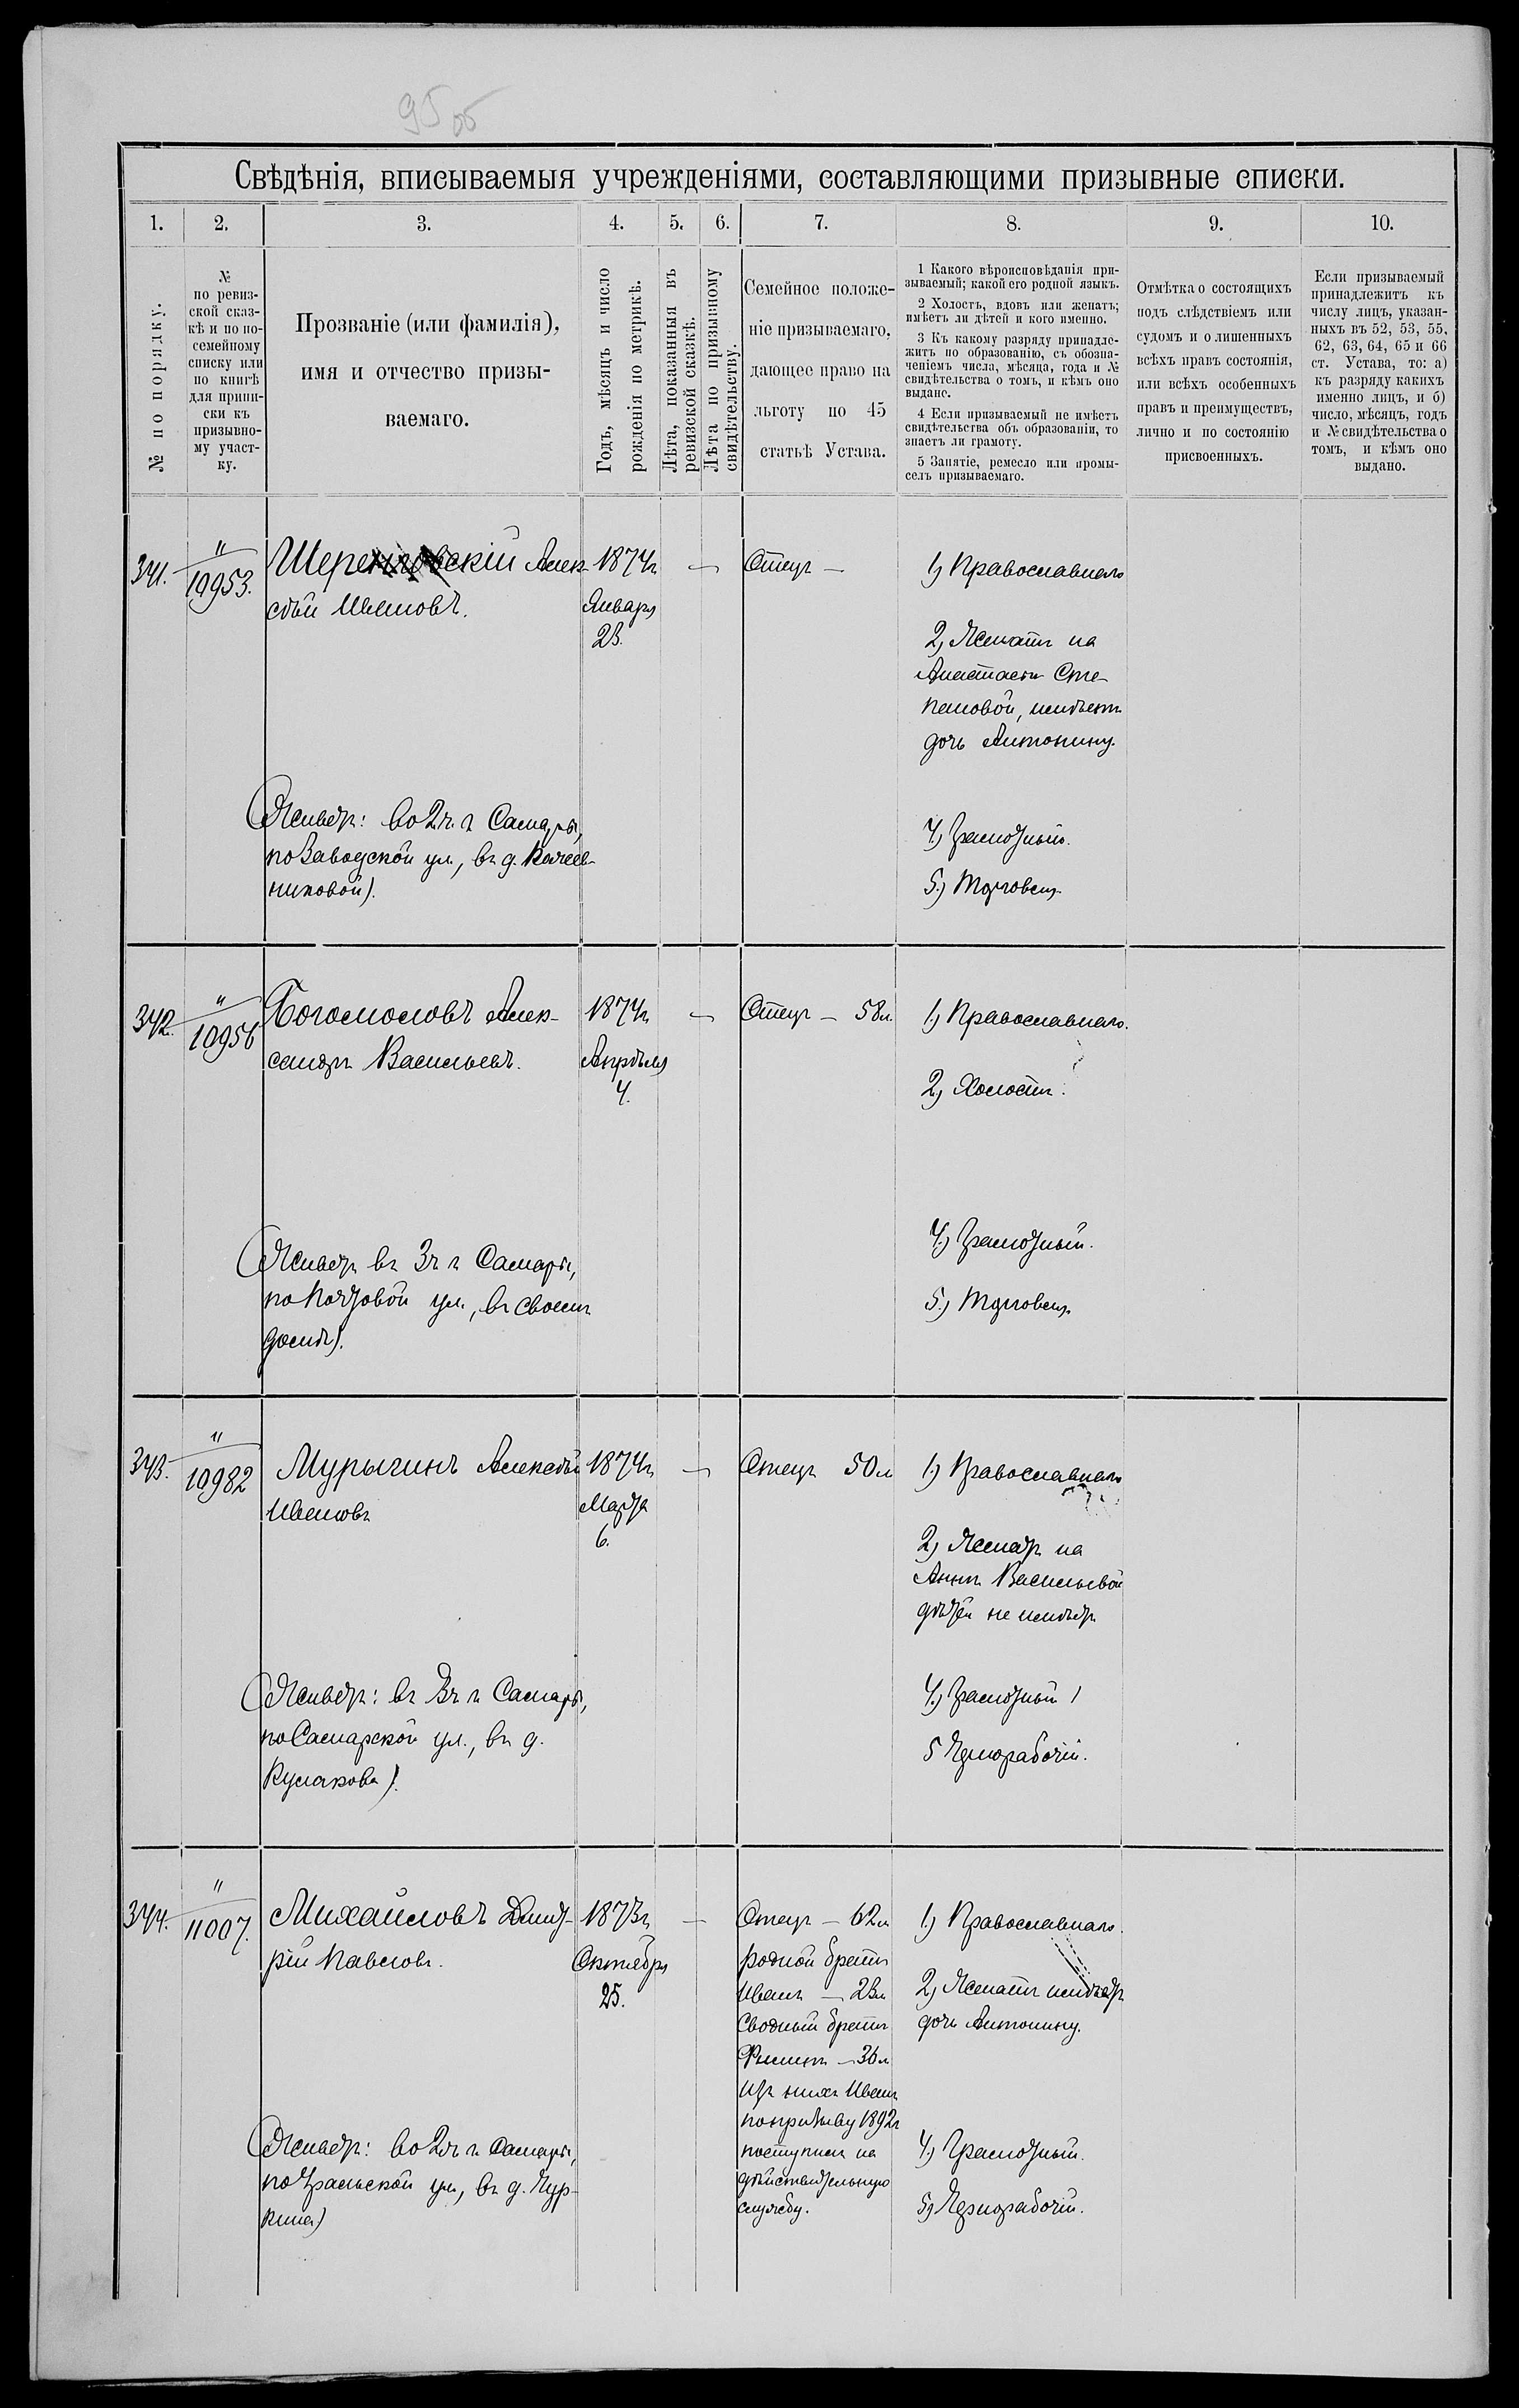 95 об
Свѣдѣнія, вписываемыя учрежденіями, составляющими призывные списки.
1. 2. 3. 4. 5. 6. 7. 8. 9. 10.
№ по порядку.
№
по ревиз-
ской сказ-
кѣ и по по-
семейному
списку или
по книгѣ
для припи-
ски къ
призывно-
му участ-
ку.
Прозваніе (или фамилія),
имя и отчество призы-
ваемаго.
Годъ, мѣсяцъ и число
рожденія по метрикѣ.
Лѣта, показанныя въ
ревизской сказкѣ.
Лѣта по призывному
свидѣтельству.
Семейное положе-
ніе призываемаго,
дающее право на
льготу по 45
статьѣ Устава.
1 Какого вѣроисповѣданія при-
зываемый; какой его родной языкъ.
2 Холостъ, вдовъ или женатъ;
имѣетъ ли дѣтей и кого именно.
3 Къ какому разряду принадле-
житъ по образованію, съ обозна-
ченіемъ числа, мѣсяца, года и №
свидѣтельства о томъ, и кѣмъ оно
выдано.
4 Если призываемый не имѣетъ
свидѣтельства объ образованіи, то
знаетъ ли грамоту.
5 Занятіе, ремесло или промы-
селъ призываемаго.
Отмѣтка о состоящихъ
подъ слѣдствіемъ или
судомъ и о лишенныхъ
всѣхъ правъ состоянія,
или всѣхъ особенныхъ
правъ и преимуществъ,
лично и по состоянію
присвоенныхъ.
Если призываемый
принадлежитъ къ
числу лицъ, указан-
ныхъ въ 52, 53, 55,
62, 63, 64, 65 и 66
ст. Устава, то: а)
къ разряду какихъ
именно лицъ, и б)
число, мѣсяцъ, годъ
и № свидѣтельства о
томъ, и кѣмъ оно
выдано.
341.
"
10953.
Алек-
сѣй Ивановъ.
(Живетъ: во 2 ч. г. Самары,
по Заводской ул., въ д.
никовой).
1874 г.
Января
23.
—
Отецъ —
1) Православнаго
2) Женатъ на
Анастасіи Сте-
пановой, имѣетъ
дочь Антонину.
4) Грамотный.
5.) Торговецъ.
342.
"
10956
Богомоловъ Алек-
сандръ Васильевъ.
(Живетъ въ 3 ч. г. Самары,
по Почтовой ул., въ своемъ
домѣ).
1874 г.
Апрѣля
4.
—
Отецъ — 58 л.
1.) Православнаго.
2) Холостъ.
4.) Грамотный.
5.) Торговецъ.
343.
"
10982
Мурыгинъ Алексѣй
Ивановъ
(Живетъ: въ 3 ч. г. Самары,
по Самарской ул., въ д.
Кулакова).
1874 г.
Марта
6.
—
Отецъ 50 л
1.) Православнаго
2) Женатъ на
Аннѣ Васильевой
дѣтей не имѣетъ
4.) Грамотный
5 Чернорабочій.
344.
"
11007.
Михайловъ Дмит-
рій Павловъ.
(Живетъ: во 2 ч. г. Самары,
по Уральской ул., въ д. Чур-
кина)
1873 г.
Октября
25.
—
Отецъ — 62 л
родной братъ
Иванъ — 23 л
Сводный братъ
Филиппъ — 36 л
Изъ нихъ Иванъ
по призыву 1892 г
поступилъ на
дѣйствительную
службу.
1.) Православнаго.
2) Женатъ имѣетъ
дочь Антонину.
4.) Грамотный.
5) Чернорабочій.